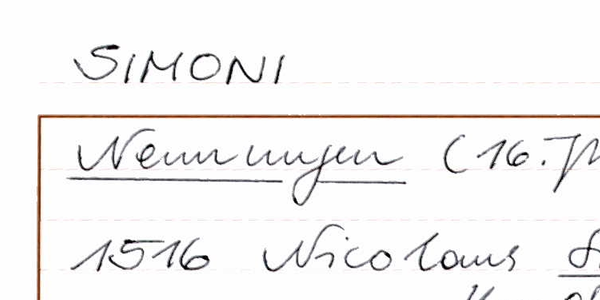 SIMONI
Nenningen (16.
1516 Nicolaus